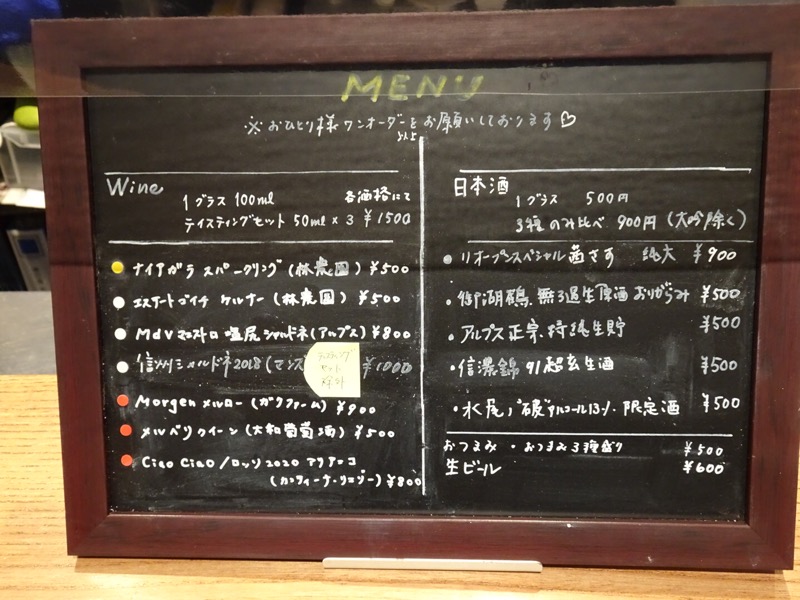 MENU
※おひとり様ワンオーダーをお願いしております♡
以上
Wine
1グラス 100ml 各価格にて
テイスティングセット 50ml×3 ¥1500
ナイアガラ スパークリング(林農園) ¥500
エステートゴイチ ケルナー(林農園) ¥500
MdVマエストロ 塩尻シャルドネ(アルプス) ¥800
信州シャルドネ2018(マンズ ¥1000
セット
除外
Morgen メルロー(ガクファーム) ¥900
メルベリクイーン(大和葡萄酒) ¥500
Ciao Ciao ノロッソ2020 アリアニコ
(カンティーナ・リエゾー) ¥800
日本酒
1グラス 500円
3種のみ比べ 900円(大吟除く)
・リオープンスペシャル 茜さす 純大 ¥900
・御湖鶴 無ろ過生原酒 おりがらみ ¥500
・アルプス正宗 特純生貯 ¥500
・信濃錦 91 超玄生酒 ¥500
・水尾 アルコール13% 限定酒 ¥500
おつまみ ・おつまみ3種盛り ¥500
生ビール ¥600